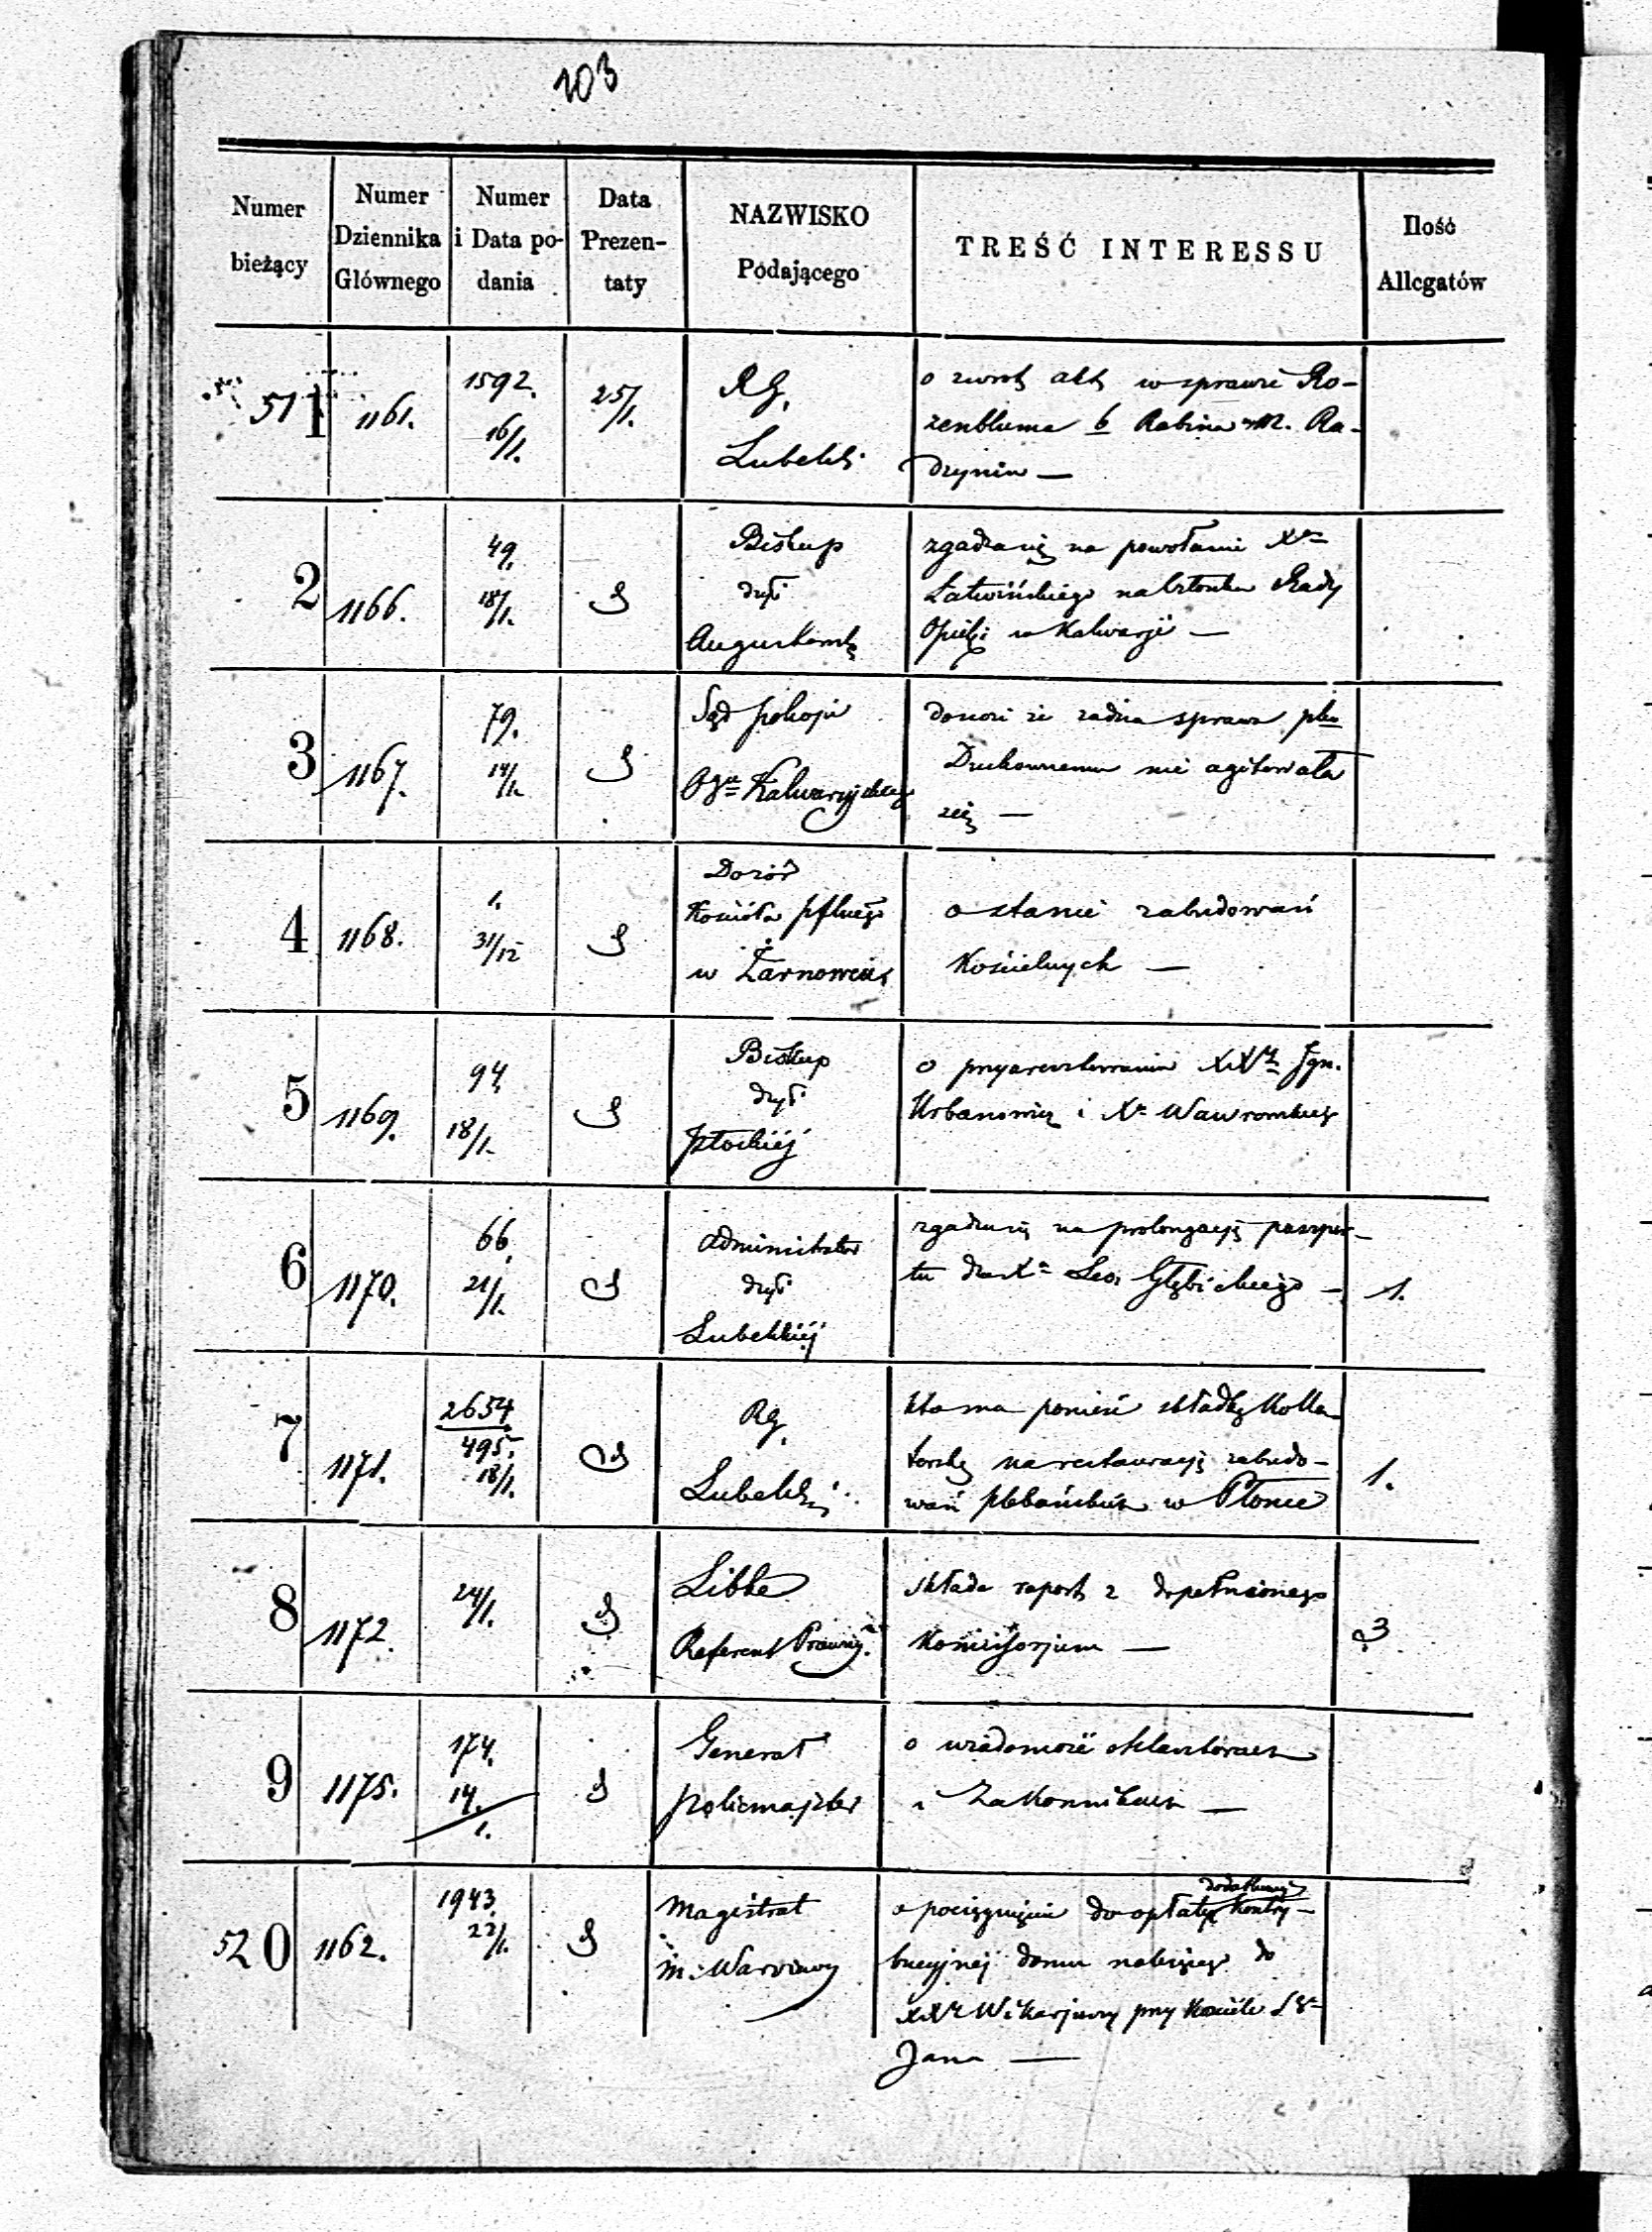 103
Numer bieżący
Numer Dziennika Głównego
Numer i Data podania
Data Prezentaty
NAZWISKO Podającego
TREŚĆ INTERESSU
Ilość Allegatów
511
1161.
1592.
16/1.
25/1.
RG.
Lubelski
o zwrot akt w sprawie Ro-
zenbluma b Rabina m. Ra-
dzynin —
2
1166.
49.
18/1.
Biskup
dyi
Augustowsk
zgadza się na powołanie Xa
Łatwińskiego na Członka Rady
Opiek w Kalwarji —
3
1167.
79.
14/1.
Sąd pokoju
Ogu Kalwaryjskiego
donosi że żadna sprawa pko
Duchownemu nie agitowała
się —
4
1168.
1.
31/12
Dozór
Kościoła pflnego
w Żarnowcu
o stanie zabudowań
Kościelnych —
5
1169.
94.
18/1.
Biskup
dyi
Płockiéj
o przyaresztowaniu XX Ign.
Urbanowicz i Xa Wawrowskiego
6
1170.
66.
21/1.
Administrator
dyi
Lubelskiéj
zgadza się na prolongacyę paszpor-
tu dla Xa Leo. Głębickiego —
1.
7
1171.
2654
495.
18/1.
RG.
Lubelski
kto ma ponieść składkę Kolla-
torską na restauracyę zabudo-
wań plebańskich w Płonce
1.
8
1172.
24/1.
Libke
Referent Prawny
składa raport z dopełnionego
Komissorjum —
3
9
1175.
174.
14/1.
Generał
policmajster
o wiadomość o klasztorach
i Zakonnikach —
520
1162.
1943.
22/1.
Magistrat
m. Warszawy
o pociągnięcie do opłaty dodatkowej kontry-
bucyjnej domu należącego do
XX Wikarjuszy przy Kościele Sgo
Jana —